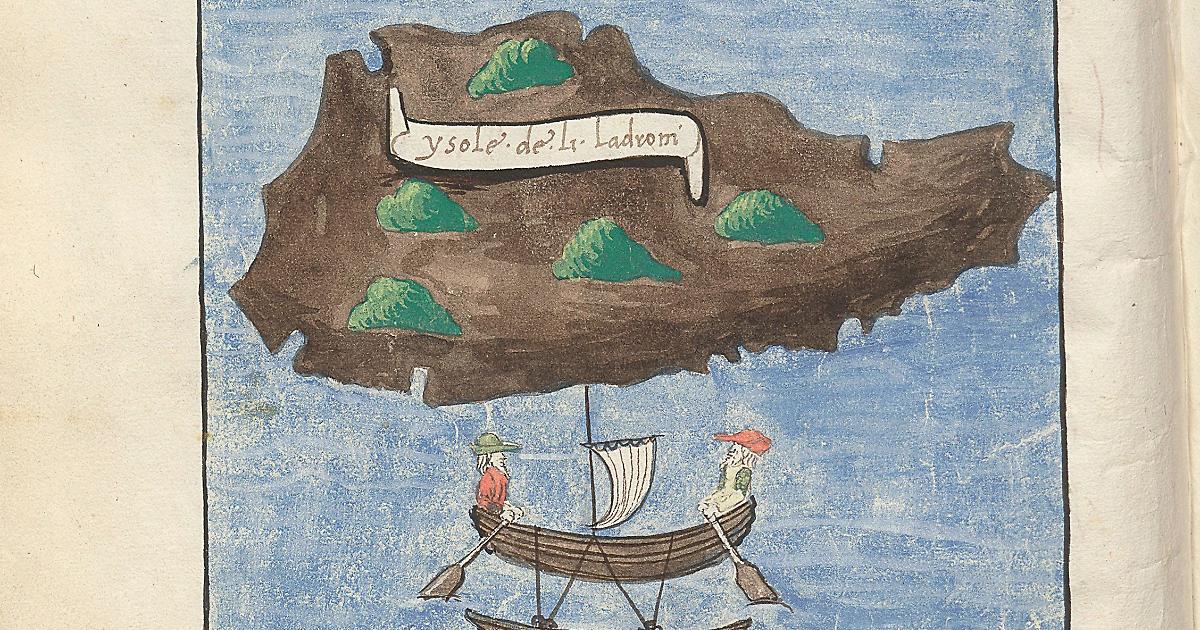 ysole · de · li · ladroni